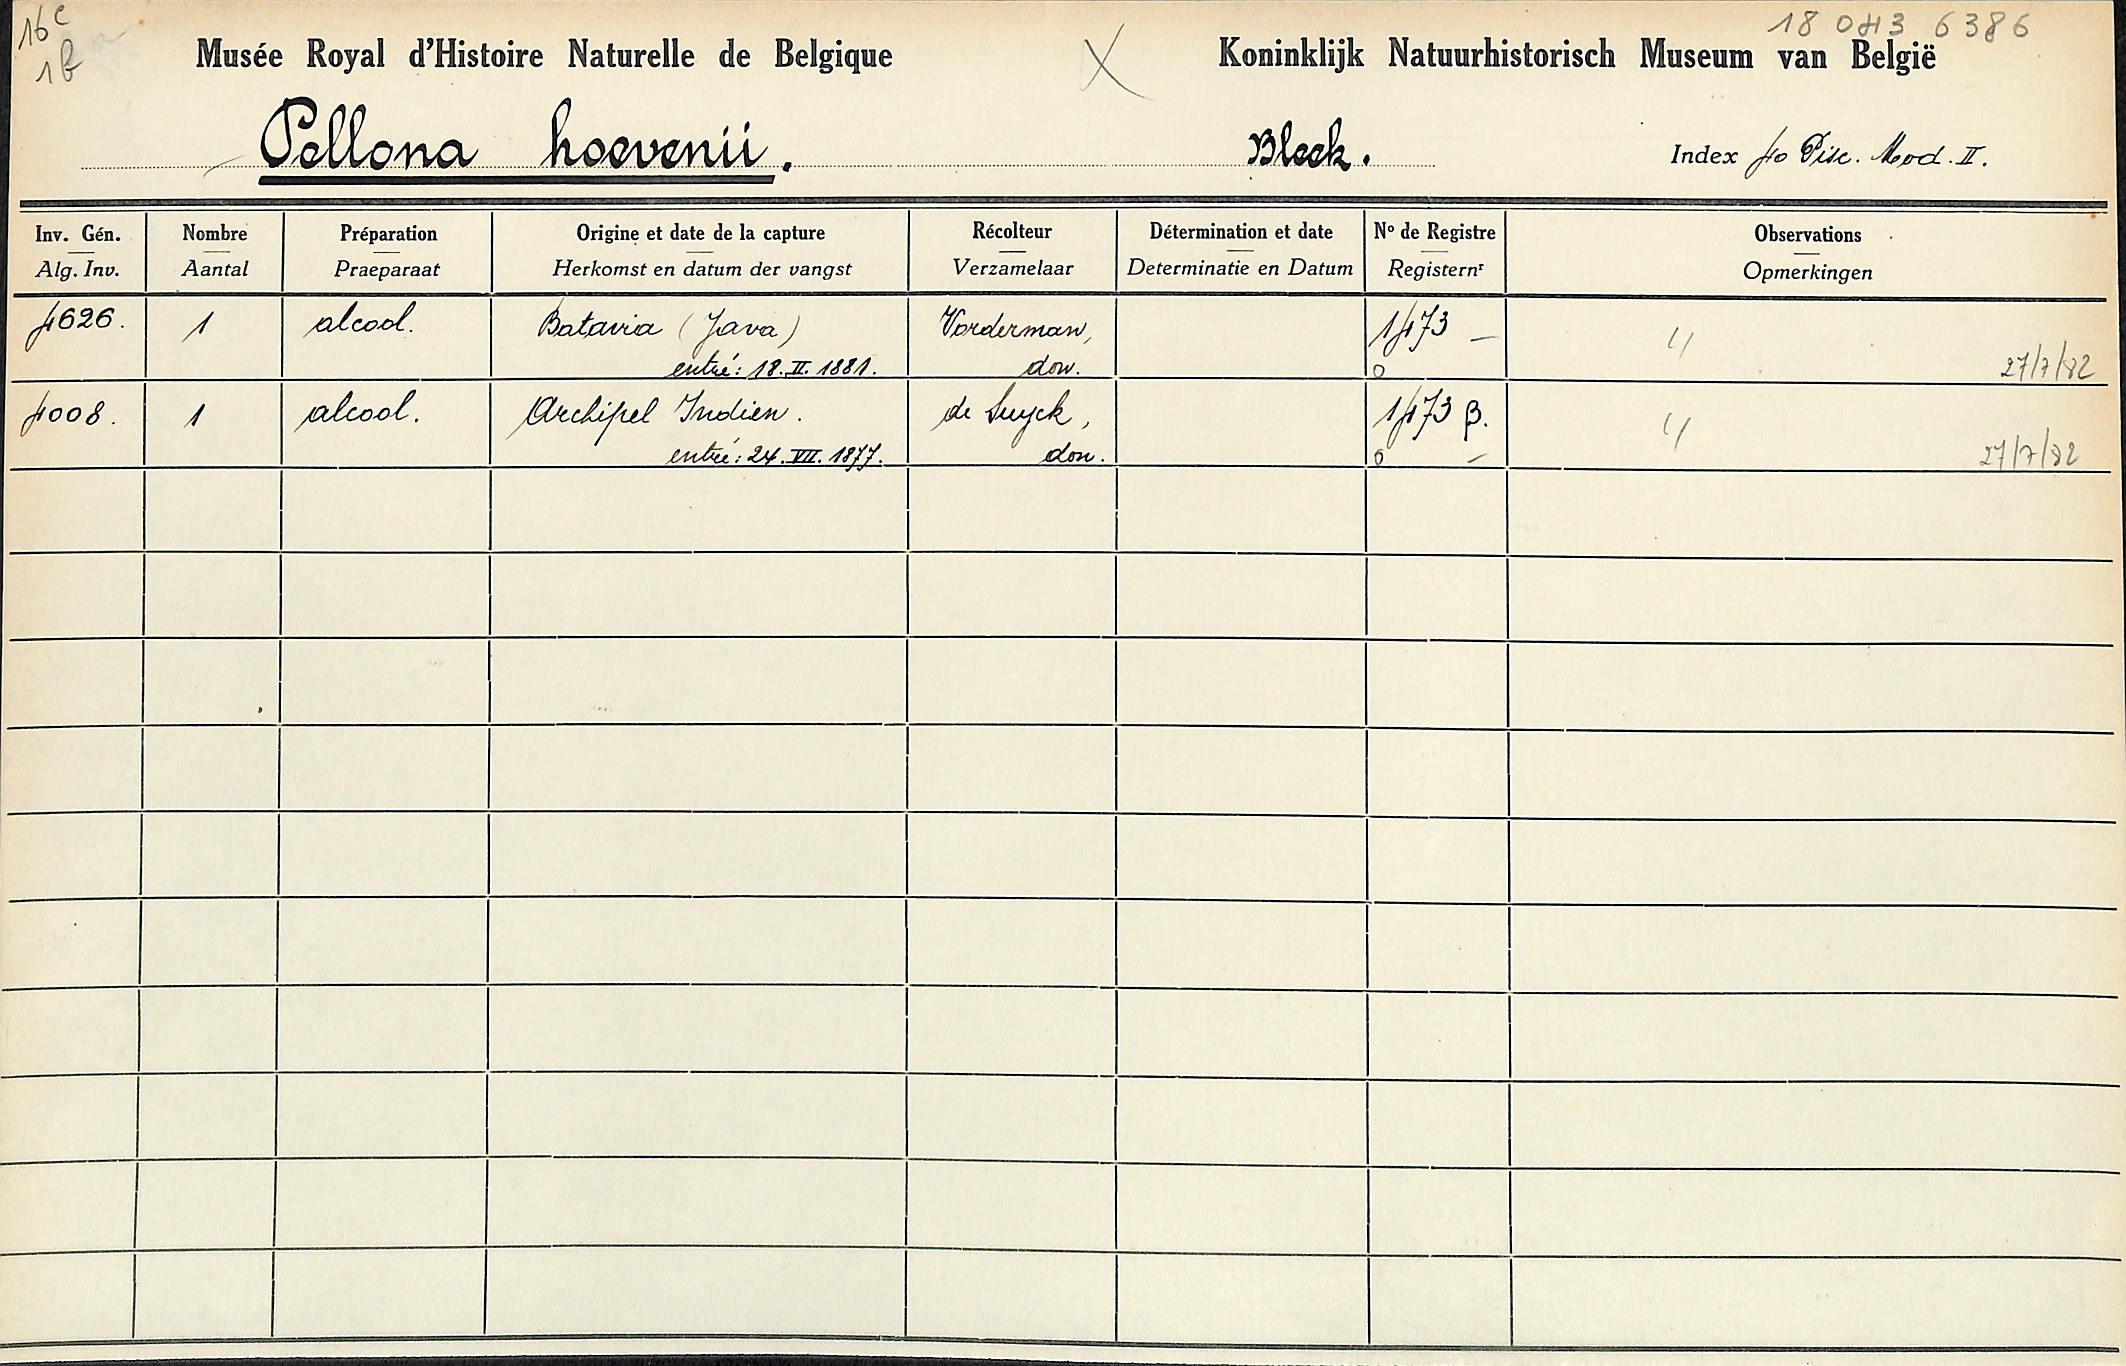 16c
1b
18 043 6386
Musée Royal d'Histoire Naturelle de Belgique
X
Koninklijk Natuurhistorisch Museum van België
Pellona hoevenii.
Bleek.
Index 40 Pisc. Mod. II.
Inv. Gén.
Alg. Inv.
Nombre
Aantal
Préparation
Praeparaat
Origine et date de la capture
Herkomst en datum der vangst
Récolteur
Verzamelaar
Détermination et date
Determinatie en Datum
No de Registre
Registernr
Observations
Opmerkingen
4626. 1 alcool. Batavia (Java) Vorderman, 1473 —
entré: 18. II. 1881. don. 0 27/7/82
4008. 1 alcool. Archipel Indien. de Luyck, 1473 β.
entré: 24. VII. 1877. don. 0 — 27/7/82